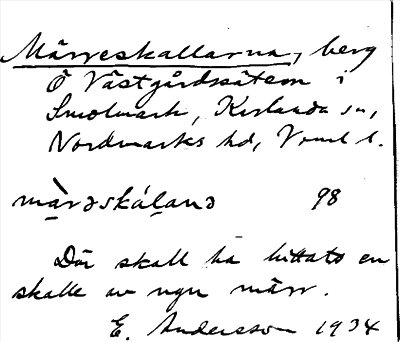 Märreskallarna, berg
Ö Västgårdssätern i
Smolmark, Karlanda sn,
Nordmarks hd, Vrml l.
mä̀rəskálanə 98
Där skall ha hittats en
skalle av ngn märr.
E. Andersson 1934